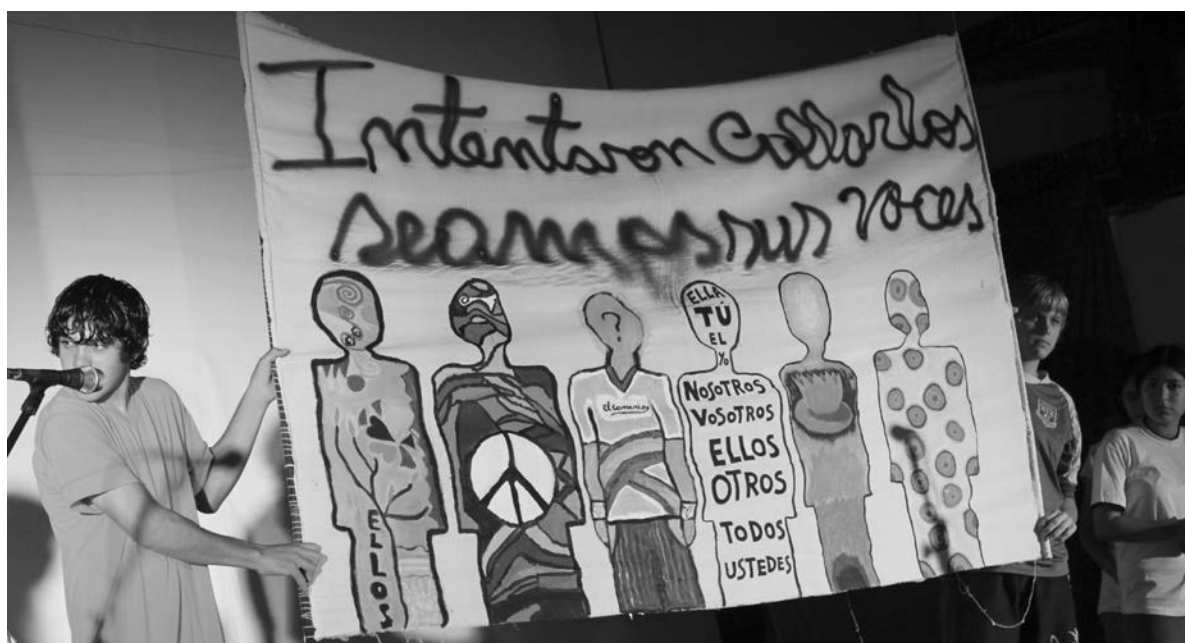 Intentaron Callarlos
seamos sus voces
ELLOS
ELLA
TÚ
EL
YO
NOSOTROS
VOSOTROS
ELLOS
OTROS
TODOS
USTEDES